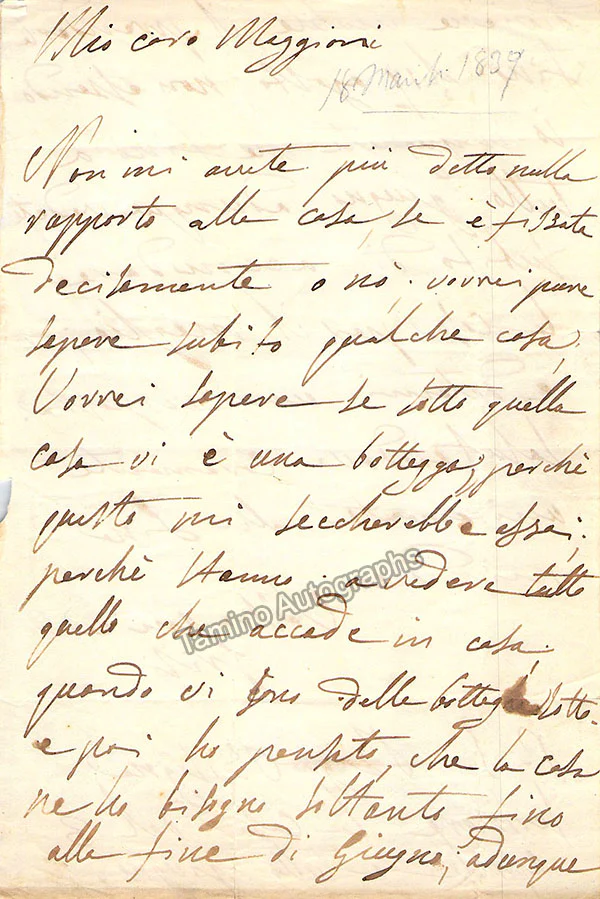 Mio caro Maggioni
18 March 1839
Non mi avete più detto nulla
rapporto alla casa, se è fissata
decisamente o nò; vorrei pure
sapere subito qualche cosa;
Vorrei sapere se sotto quella
casa vi è una bottegga; perchè
questo mi seccherebbe assai;
perchè stanno a vedere tutto
quello che accade in casa;
quando vi sono delle botteghe sotto.
e poi ho pensato, che la casa
ne ho bisogno soltanto fino
alla fine di Giugno; adunque
Tamino Autographs